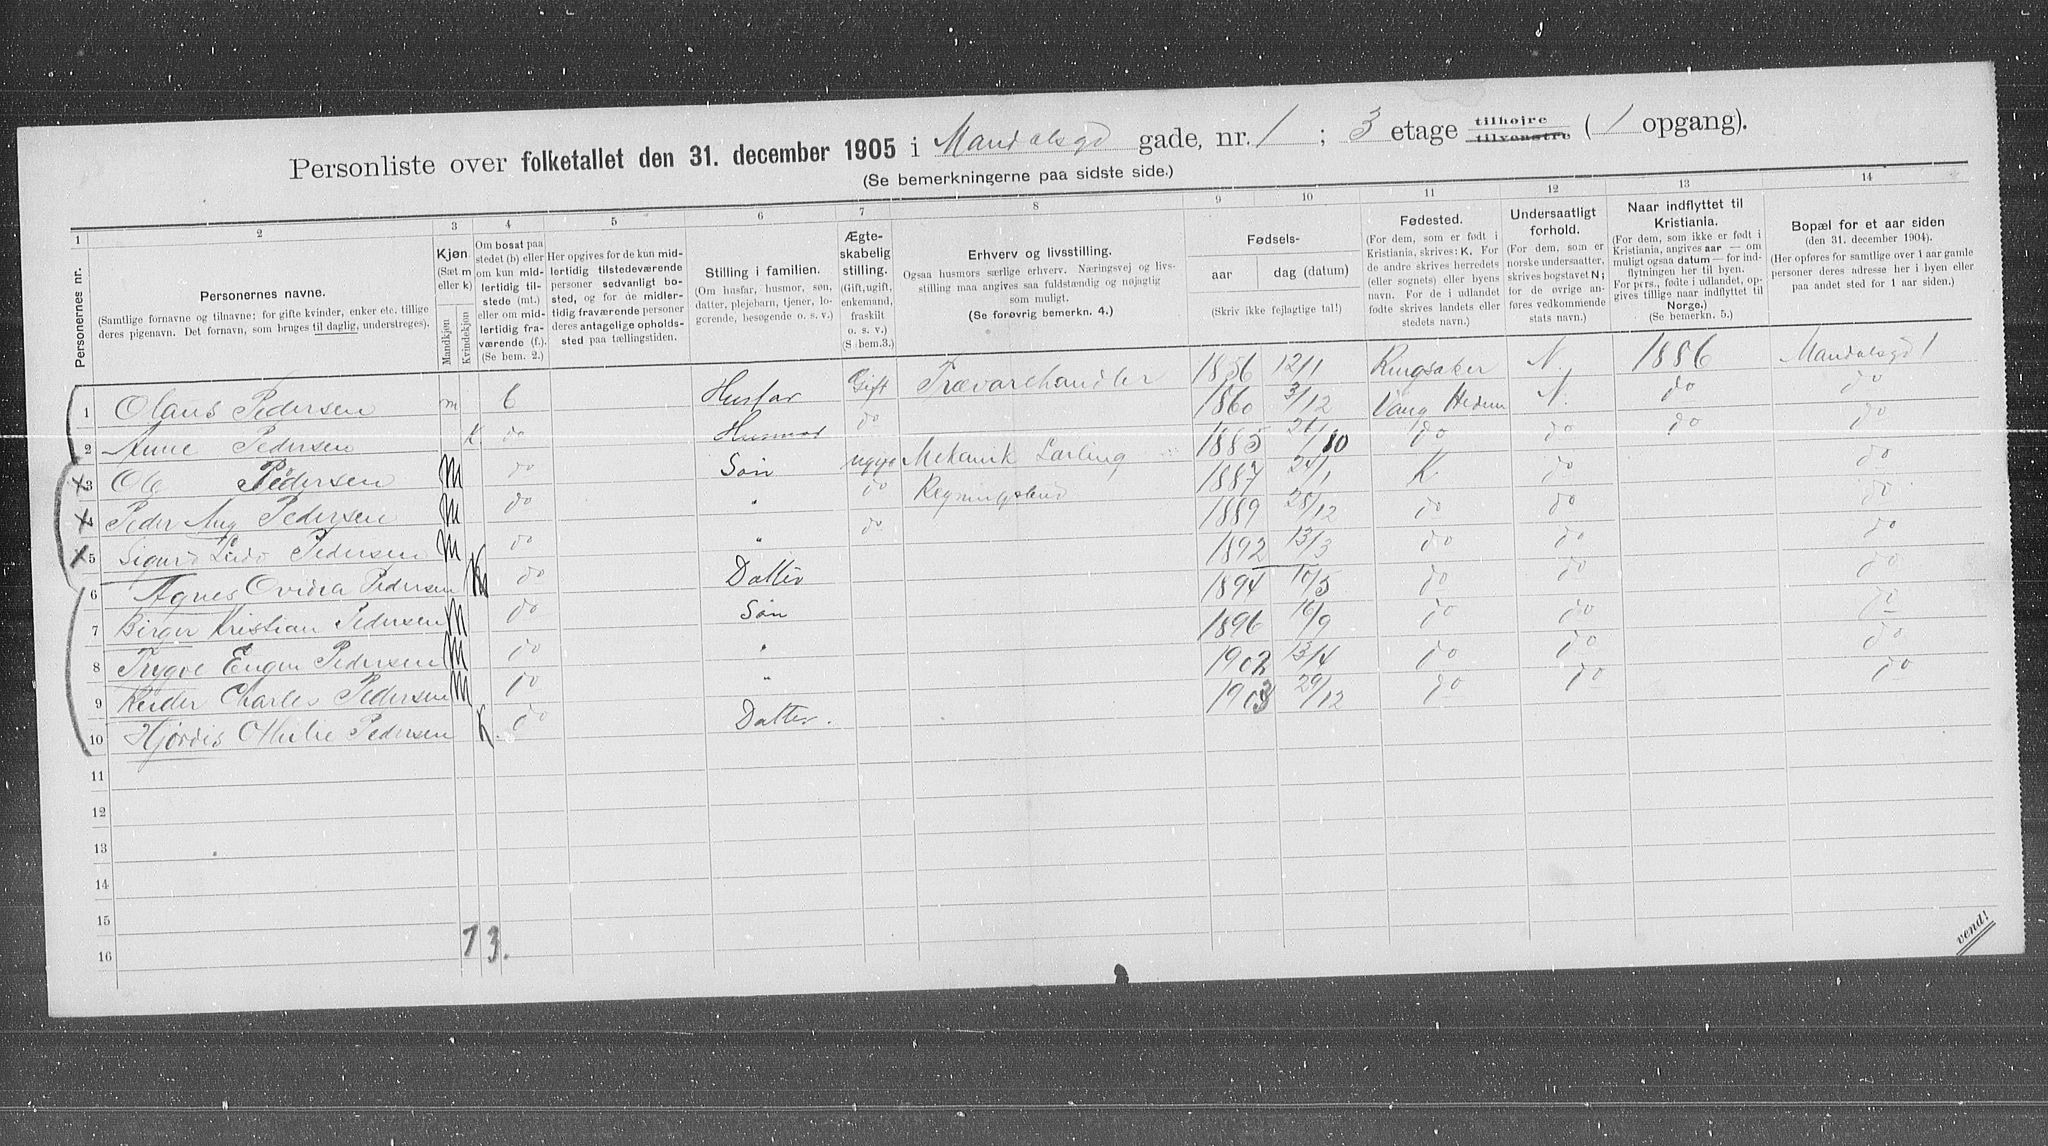 Personliste over folketallet den 31. december 1905 i Mandalsgd gade, nr. 1 ; 3 etage tilhøjre tilvenstre ( 1 opgang).
(Se bemerkningerne paa sidste side.)
1 2 3 4 5 6 7 8 9 10 11 12 13 14
Personernes nr.
Personernes navne.
(Samtlige fornavne og tilnavne; for gifte kvinder, enker etc. tillige deres pigenavn. Det fornavn, som bruges til daglig, understreges).
Kjøn
(Sæt m eller k)
Mandkjøn
Kvindekjøn
Om bosat paa stedet (b) eller om kun midlertidig tilstede (mt.) eller om midlertidig fraværende (f.). (Se bem. 2.)
Her opgives for de kun midlertidig tilstedeværende personer sedvanligt bosted, og for de midlertidig fraværende personer deres antagelige opholdssted paa tællingstiden.
Stilling i familien.
(Om husfar, husmor, søn, datter, plejebarn, tjener, logerende, besøgende o. s. v.)
Ægteskabelig stilling.
(Gift, ugift, enkemand, fraskilt o. s. v.)
(S bem.3.)
Erhverv og livsstilling.
Ogsaa husmors særlige erhverv. Næringsvej og livsstilling maa angives saa fuldstændig og nøjagtig som muligt.
(Se forøvrig bemerkn. 4.)
Fødsels-
aar dag (datum)
(Skriv ikke fejlagtige tal!)
Fødested.
(For dem, som er født i Kristiania, skrives: K. For de andre skrives herredets (eller sognets) eller byens navn. For de i udlandet fødte skrives landets eller stedets navn.)
Undersaatligt forhold.
(For dem, som er norske undersaatter, skrives bogstavet N; for de øvrige anføres vedkommende stats navn.)
Naar indflyttet til Kristiania.
(For dem, som ikke er født i Kristiania, angives aar — om muligt ogsaa datum — for indflytningen her til byen. For prs., fødte i udlandet, opgives tillige naar indflyttet til Norge.)
(Se bemerkn. 5.)
Bopæl for et aar siden
(den 31. december 1904).
(Her opføres for samtlige over 1 aar gamle personer deres adresse her i byen eller paa andet sted for 1 aar siden.)
1 Olaus Pedersen m b Husfar Gift Trævarehandler 1856 12/1 Ringsaker N. 1886 Mandalsgd 1
2 Anne Pedersen K do Husmor do 1860 3/12 Vang Hedm N. do do
3 Ole Pedersen M do Søn ugift Mekanik Lærling 1885 21/10 do do do do
4 Peder Aug Pedersen M do " do 1887 24/1 K. do do
5 Sigurd Pedersen M do " do 1889 28/12 do do do
6 Agnes Ovidia Pedersen K do Datter 1892 13/3 do do do
7 Birger Kristian Pedersen M do Søn 1894 10/5 do do do
8 Trygve Eugen Pedersen M do " 1896 16/9 do do do
9 Reider Charles Pedersen M do " 1902 13/4 do do do
10 Hjørdis Othilie Pedersen K. do Datter. 1903 29/12 do do do
11
12
13
14
15
16
7 3.
vend!